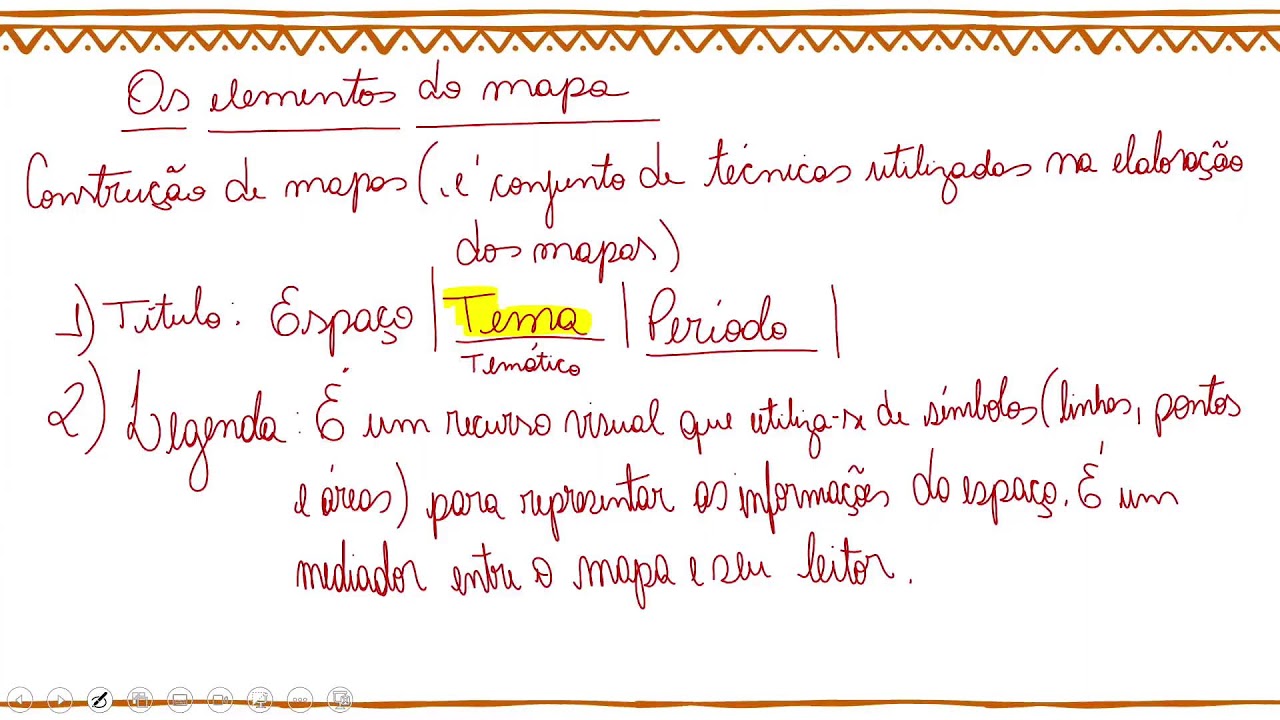 Os elementos do mapa
Construção de mapas (.é conjunto de técnicas utilizadas na elaboração
dos mapas)
1) Título: Espaço | Tema | Período |
Temático
2) Legenda: É um recurso visual que utiliza-se de símbolos (linhas, pontos
e áreas) para representar as informações do espaço. É um
mediador entre o mapa e seu leitor.